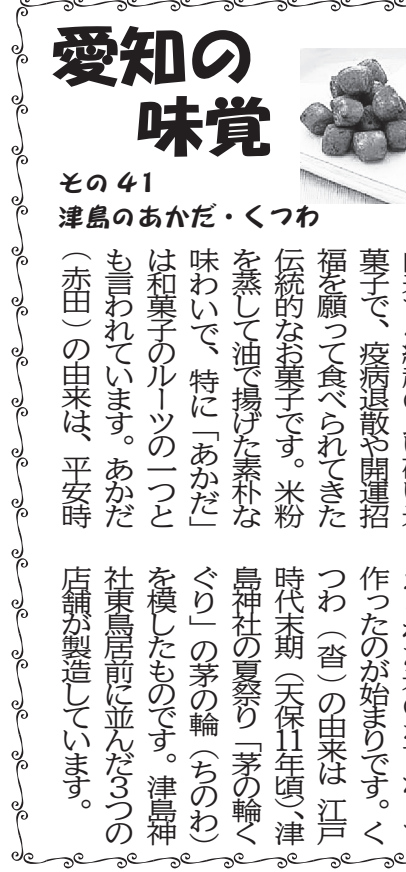 愛知の
味覚
その41
津島のあかだ・くつわ
菓子で、疫病退散や開運招
福を願って食べられてきた
伝統的なお菓子です。米粉
を蒸して油で揚げた素朴な
味わいで、特に「あかだ」
は和菓子のルーツの一つと
も言われています。あかだ
（赤田）の由来は、平安時
作ったのが始まりです。く
つわ（沓）の由来は 江戸
時代末期（天保11年頃）、津
島神社の夏祭り「茅の輪く
ぐり」の茅の輪（ちのわ）
を模したものです。津島神
社東鳥居前に並んだ3つの
店舗が製造しています。